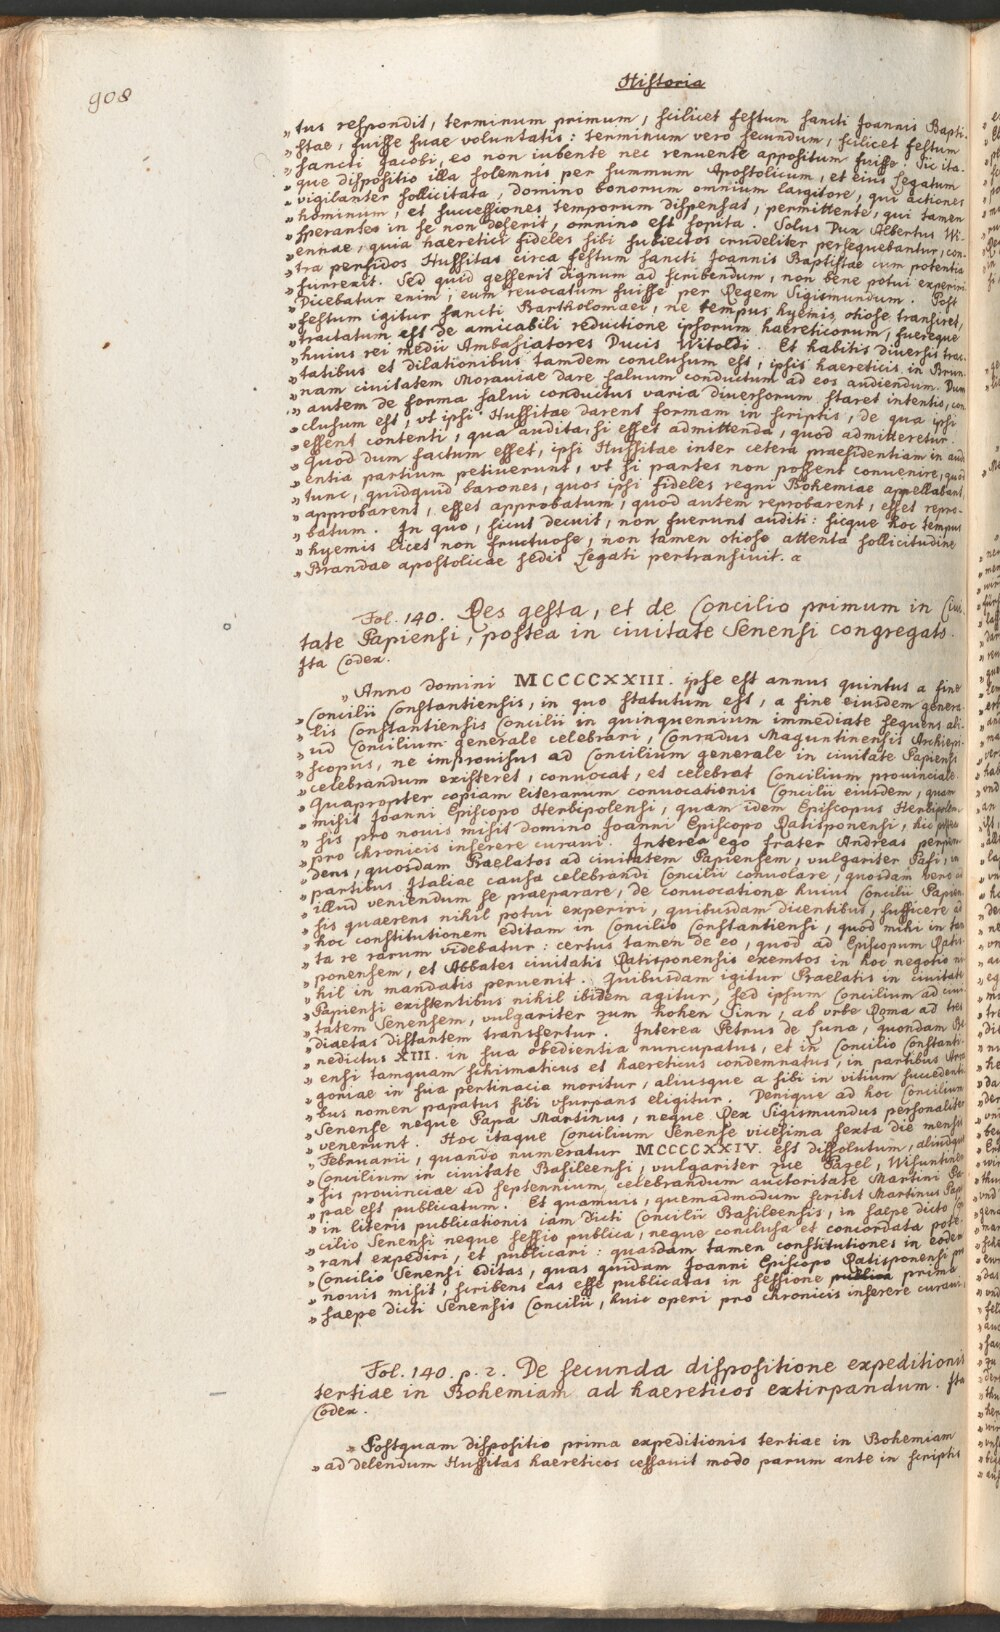 908
Historia
„tus respondit, terminum primum, scilicet festum sancti Joannis Bapti-
„stae, fuisse suae voluntatis: terminum vero secundum, scilicet festum
„sancti Jacobi, eo non iubente nec renuente appositum fuisse. Sic ita-
„que dispositio illa solemnis per summum Apostolicum, et eius Legatum
„vigilanter sollicitata, domino bonorum omnium largitore, qui actiones
„hominum, et successiones temporum dispensat, permittente, qui tamen
„sperantes in se non deserit, omnino est sopita. Solus Dux Albertus Wi-
„ennae, quia haeretici fideles sibi subiectos crudeliter persequebantur, con-
„tra perfidos Hussitas circa festum sancti Joannis Baptistae cum potentia
„surrexit. Sed quid gesserit dignum ad scribendum, non bene potui experiri.
„Dicebatur enim, eum reuocatum fuisse per Regem Sigismundum. Post
„festum igitur sancti Bartholomaei, ne tempus hyemis otiose transiret,
„tractatum est de amicabili reductione ipsorum haereticorum, fuereque
„huius rei medii Ambasiatores Ducis Witoldi. Et habitis diuersis trac-
„tatibus et dilationibus tamdem conclusum est, ipsis haereticis in Brun-
„nam ciuitatem Morauiae dare saluum conductum ad eos audiendum. Dum
„autem de forma salui conductus varia diuersorum staret intentio, con-
„clusum est, vt ipsi Hussitae darent formam in scriptis, de qua ipsi
„essent contenti, qua audita, si esset admittenda, quod admitteretur.
„Quod dum factum esset, ipsi Hussitae inter cetera praesidentiam in audi-
„entia partium petiuerunt, vt si partes non possent conuenire, quod
„tunc, quidquid barones, quos ipsi fideles regni Bohemiae appellabant,
„approbarent, esset approbatum, quod autem reprobarent, esset repro-
„batum. In quo, sicut decuit, non fuerunt auditi: sicque hoc tempus
„hyemis licet non fructuose, non tamen otiose attenta sollicitudine
„Brandae apostolicae sedis Legati pertransiuit. a
Fol. 140. Res gesta, et de Concilio primum in Ciui-
tate Papiensi, postea in ciuitate Senensi congregato.
Ita Codex.
„Anno domini MCCCCXXIII. ipse est annus quintus a fine
„Concilii Constantiensis, in quo statutum est, a fine eiusdem genera-
„lis Constantiensis Concilii in quinquennium immediate sequens ali-
„ud Concilium generale celebrari, Conradus Maguntinensis Archiepi-
„scopus, ne improuisus ad Concilium generale in ciuitate Papiensi
„celebrandum existeret, conuocat, et celebrat Concilium prouinciale.
„Quapropter copiam literarum conuocationis Concilii eiusdem, quam
„misit Joanni Episcopo Herbipolensi, quam idem Episcopus Herbipolen-
„sis pro nouis misit domino Joanni Episcopo Ratisponensi, hic
„pro chronicis inserere curaui. Interea ego frater Andreas
„dens, quosdam Praelatos ad ciuitatem Papiensem, vulgariter Pafi, in
„partibus Italiae causa celebrandi Concilii conuolare, quosdam vero ad
„illud veniendum se praeparare, de conuocatione huius Concilii Papien-
„sis quaerens nihil potui experiri, quibusdam dicentibus, sufficere ad
„hoc constitutionem editam in Concilio Constantiensi, quod mihi in tan-
„ta re rarum videbatur: certus tamen de eo, quod ad Episcopum Ratis-
„ponensem, et Abbates ciuitatis Ratisponensis exemtos in hoc negotio ni-
„hil in mandatis peruenit. Quibusdam igitur Praelatis in ciuitate
„Papiensi existentibus nihil ibidem agitur, sed ipsum Concilium ad ciui-
„tatem Senensem, vulgariter zum hohen Sinn, ab vrbe Roma ad tres
„diaetas distantem transfertur. Interea Petrus de Luna, quondam Be-
„nedictus XIII. in sua obedientia nuncupatus, et in Concilio Constanti-
„ensi tamquam schismaticus et haereticus condemnatus, in partibus Arra-
„goniae in sua pertinacia moritur, aliusque a sibi in vitium succedenti-
„bus nomen papatus sibi vsurpans eligitur. Denique ad hoc Concilium
„Senense neque Papa Martinus, neque Rex Sigismundus personaliter
„venerunt. Hoc itaque Concilium Senense vicesima sexta die mensis
„Februarii, quando numeratur MCCCCXXIV. est dissolutum, aliudque
„Concilium in ciuitate Basileensi, vulgariter zue Pasel, Wisuntinen-
„sis prouinciae ad septennium celebrandum auctoritate Martini Pa-
„pae est publicatum. Et quamuis, quemadmodum scribit Martinus Papa
„in literis publicationis iam dicti Concilii Basileensis, in saepe dicto Con-
„cilio Senensi neque sessio publica, neque conclusa et concordata pote-
„rant expediri, et publicari: quasdam tamen constitutiones in eodem
„Concilio Senensi editas, quas quidam Joanni Episcopo Ratisponensi pro
„nouis misit, scribens eas esse publicatas in sessione publica prima
„saepe dicti Senensis Concilii, huic operi pro chronicis inserere curaui.
Fol. 140. p. 2. De secunda dispositione expeditionis
tertiae in Bohemiam ad haereticos extirpandum. Ita
Codex.
„Postquam dispositio prima expeditionis tertiae in Bohemiam
„ad delendum Hussitas haereticos cessauit modo parum ante in scriptis